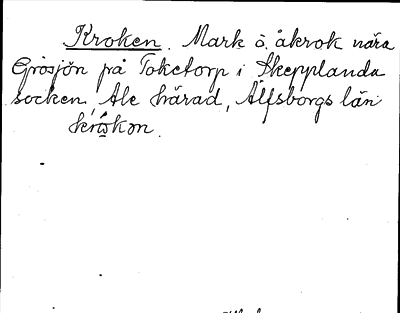 Kroken. Mark å åkrok nära
Grösjön på Toketorp i Skepplanda
socken, Ale härad, Älfsborgs län